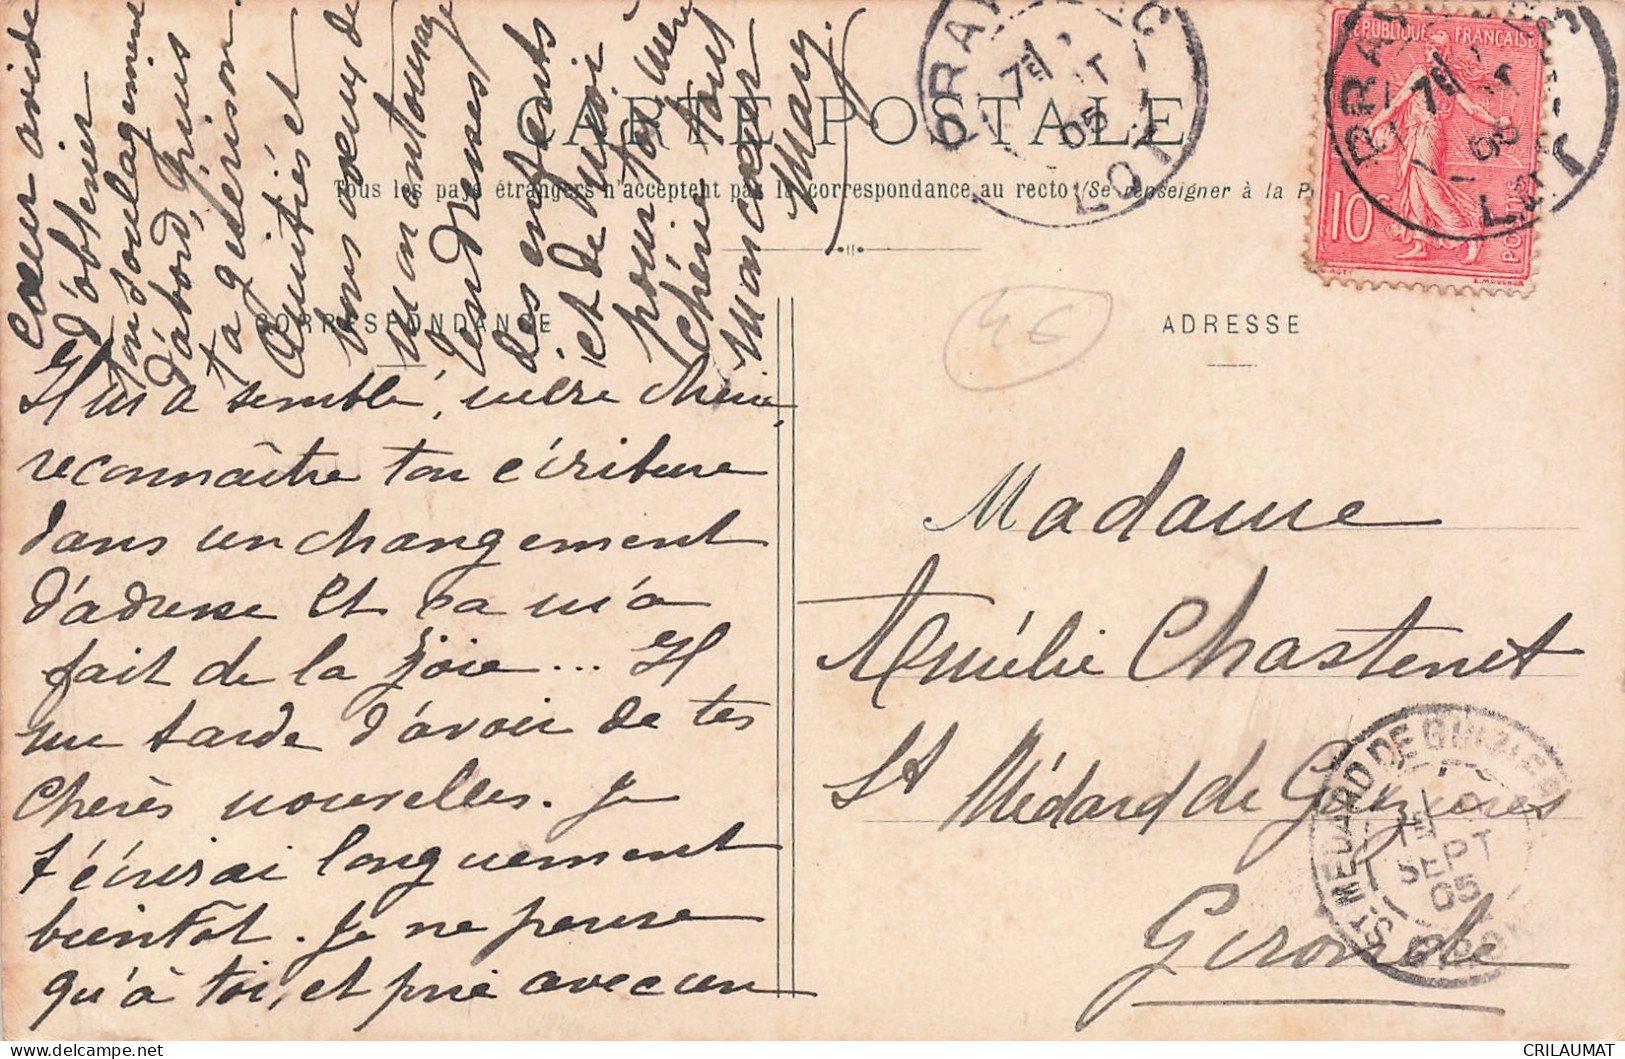 CARTE POSTALE
Tous les pays étrangers n'acceptent pas la correspondance au recto (Se renseigner à la P
CORRESPONDANCE
Il m'a semblé, mère chérie,
reconnaître ton écriture
dans un changement
d'adresse et ça m'a
fait de la joie... Il
me tarde d'avoir de tes
chères nouvelles. Je
t'écrirai longuement
bientôt. Je ne pense
qu'à toi, et prie avec un
cœur avide
d'obtenir
ton soulagement
d'abord, puis
ta guérison.
Amitiés et
bons vœux de
mon entourage
tendresses
des enfants
et de moi
pour toi, mère
chérie tout
mon cœur
Mary.
ADRESSE
Madame
Amélie Chastenet
St Médard de Guizières
Gironde
REPUBLIQUE FRANÇAISE
10c
POSTES
E.MOUCHON
BRA
7E
05
LOT
BRA
7E
05
LOT
46
ST MEDARD DE GUIZIERES
7E
SEPT
05
GIRONDE
CRILAUMAT